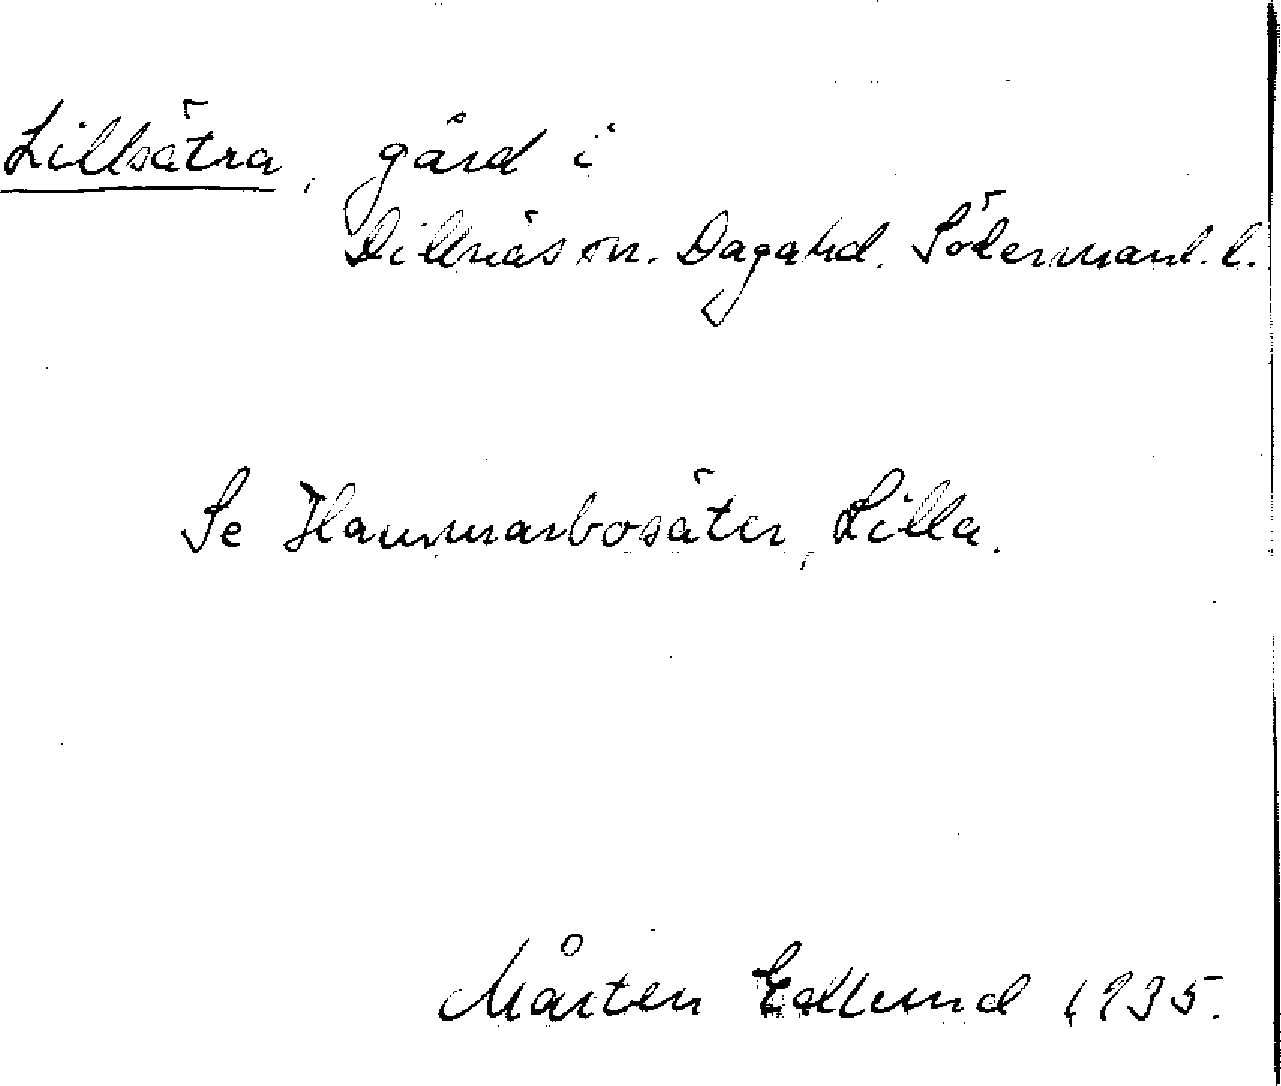 Lillsätra, gård i
Dillnäs sn. Daga hd. Södermanl. l.
Se Hammarbosäter, Lilla.
Mårten Edlund 1935.